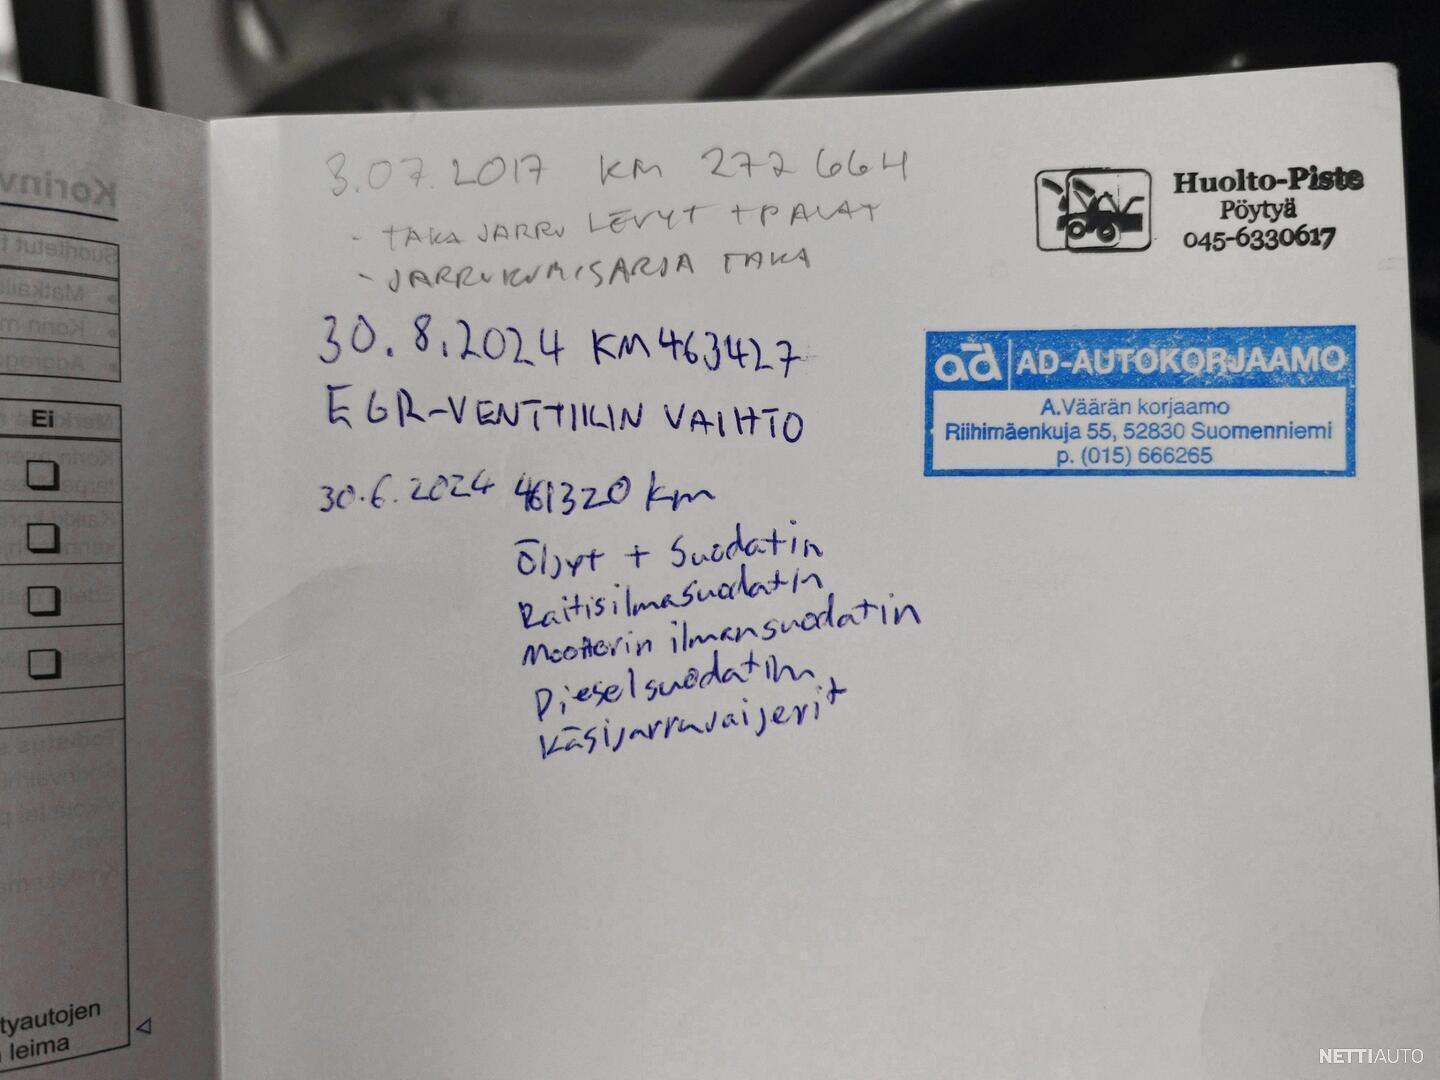 3.07.2017 KM 272664
- TAKA JARRU LEVYT + PALAT
- JARRUKUMISARJA TAKA
Huolto-Piste
Pöytyä
045-6330617
30.8.2024 KM 463427
EGR-VENTTIILIN VAIHTO
ad AD-AUTOKORJAAMO
A.Väärän korjaamo
Riihimäenkuja 55, 52830 Suomenniemi
p. (015) 666265
30.6.2024 461320 km
Öljyt + Suodatin
Raitisilmasuodatin
Moottorin ilmansuodatin
Dieselsuodatin
Käsijarruvaijerit
Ei
tyautojen
leima
NETTIAUTO